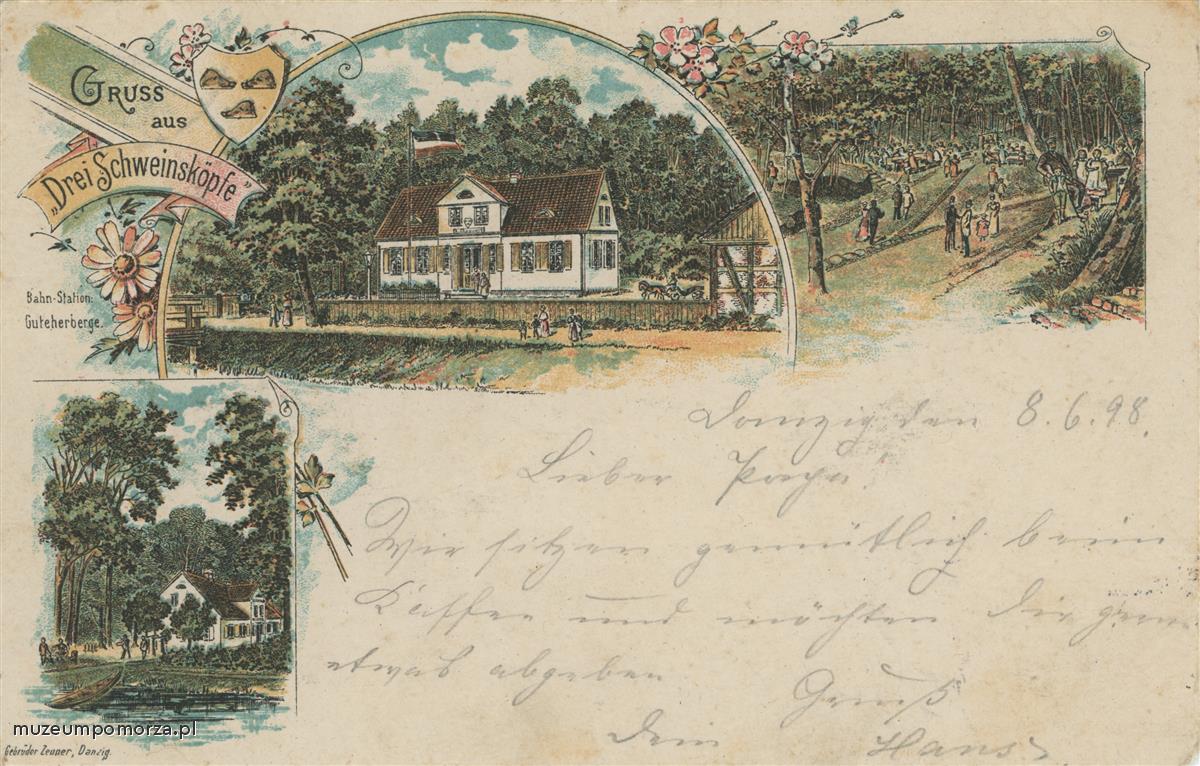 GRUSS
aus
"Drei Schweinsköpfe"
Bahn-Station:
Guteherberge.
Danzig den 8.6.98.
Lieber Papa!
Wir sitzen gemütlich beim
Kaffee und möchten Dir gern
etwas abgeben.
Gruß
Dein Hans
muzeumpomorza.pl
Gebrüder Zeuner, Danzig.